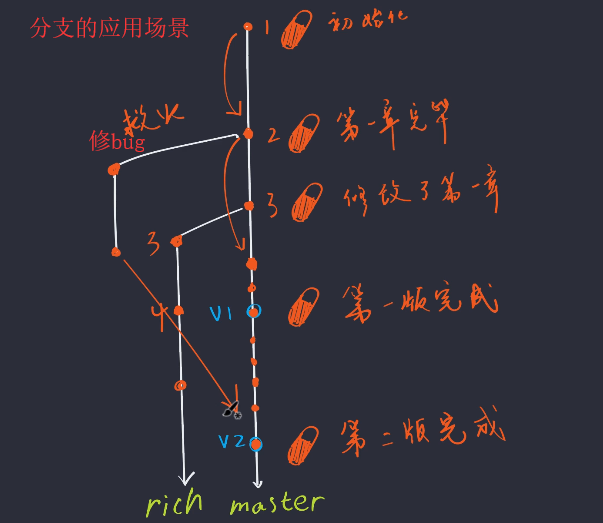 分支的应用场景
1 初始化
救火
修bug
2 第一章完毕
3 修改了第一章
3
4
V1 第一版完成
V2 第二版完成
rich master